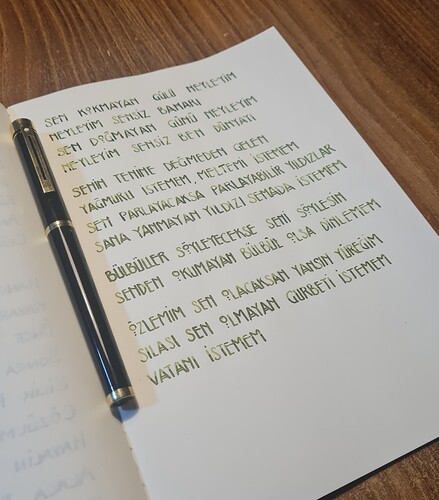 SENİ KOKMAYAN GÜLÜ NEYLEYİM
NEYLEYİM SENSİZ BAHARI
SEN DOĞMAYAN GÜNÜ NEYLEYİM
NEYLEYİM SENSİZ BEN DÜNYAYI
SENİN TENİNE DEĞMEDEN GELEN
YAĞMURU İSTEMEM, MELTEMİ İSTEMEM
SEN PARLAYACAKSA PARLAYABİLİR YILDIZLAR
SANA YANMAYAN YILDIZI SEMADA İSTEMEM
BÜLBÜLLER SÖYLEYECEKSE SENİ SÖYLESİN
SENDEN OKUMAYAN BÜLBÜL OLSA DİNLEMEM
ÖZLEMİM SEN OLACAKSAN YANSIN YÜREĞİM
SILASI SEN OLMAYAN GURBETİ İSTEMEM
VATANI İSTEMEM